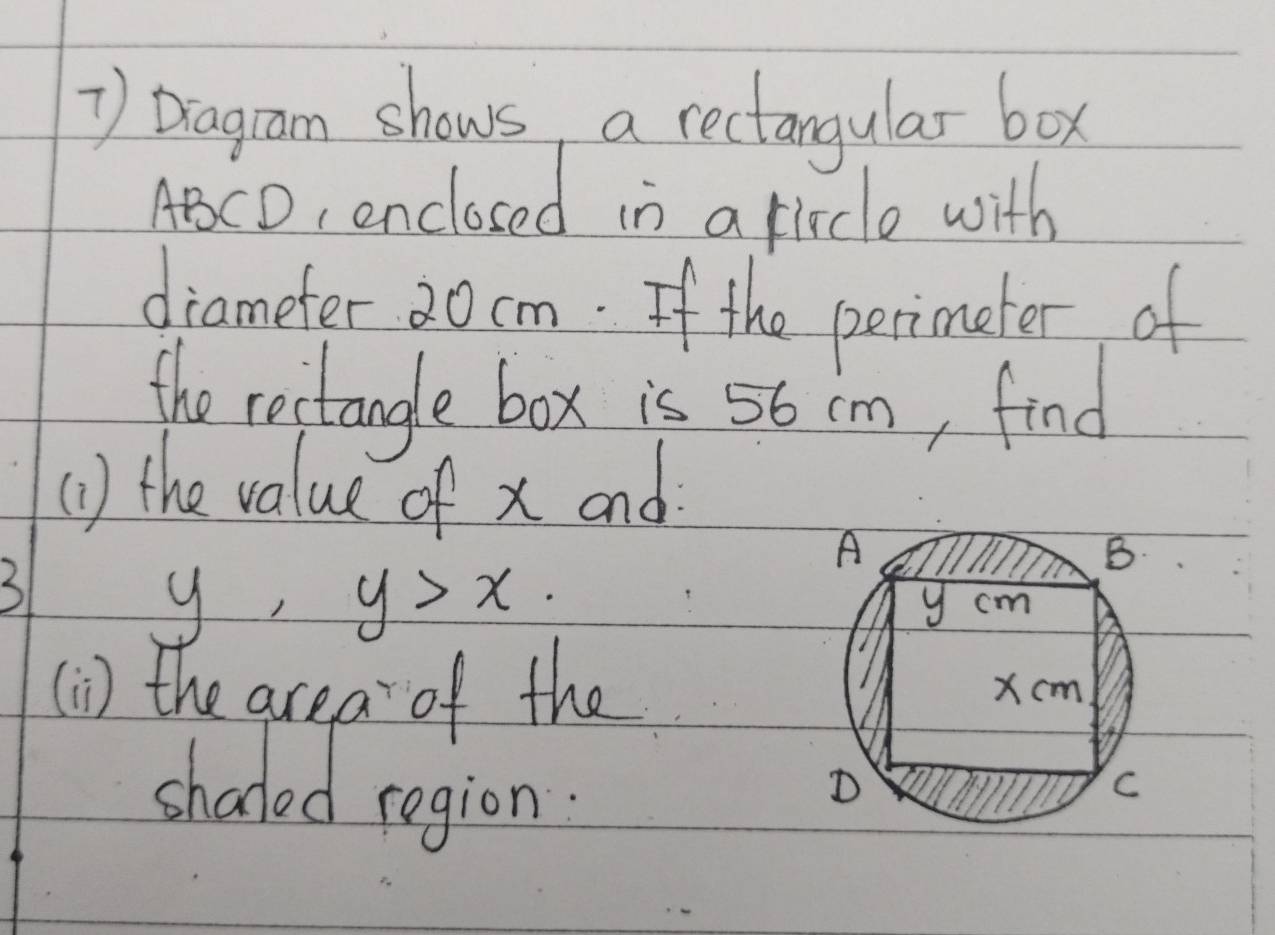 7) Diagram shows, a rectangular box
ABCD, enclosed in a circle with
diameter 20 cm. If the perimeter of
the rectangle box is 56 cm, find
(i) the value of x and
3
y, y > x.
(ii) the area of the
shaded region.
A
B
y cm
x cm
D
C